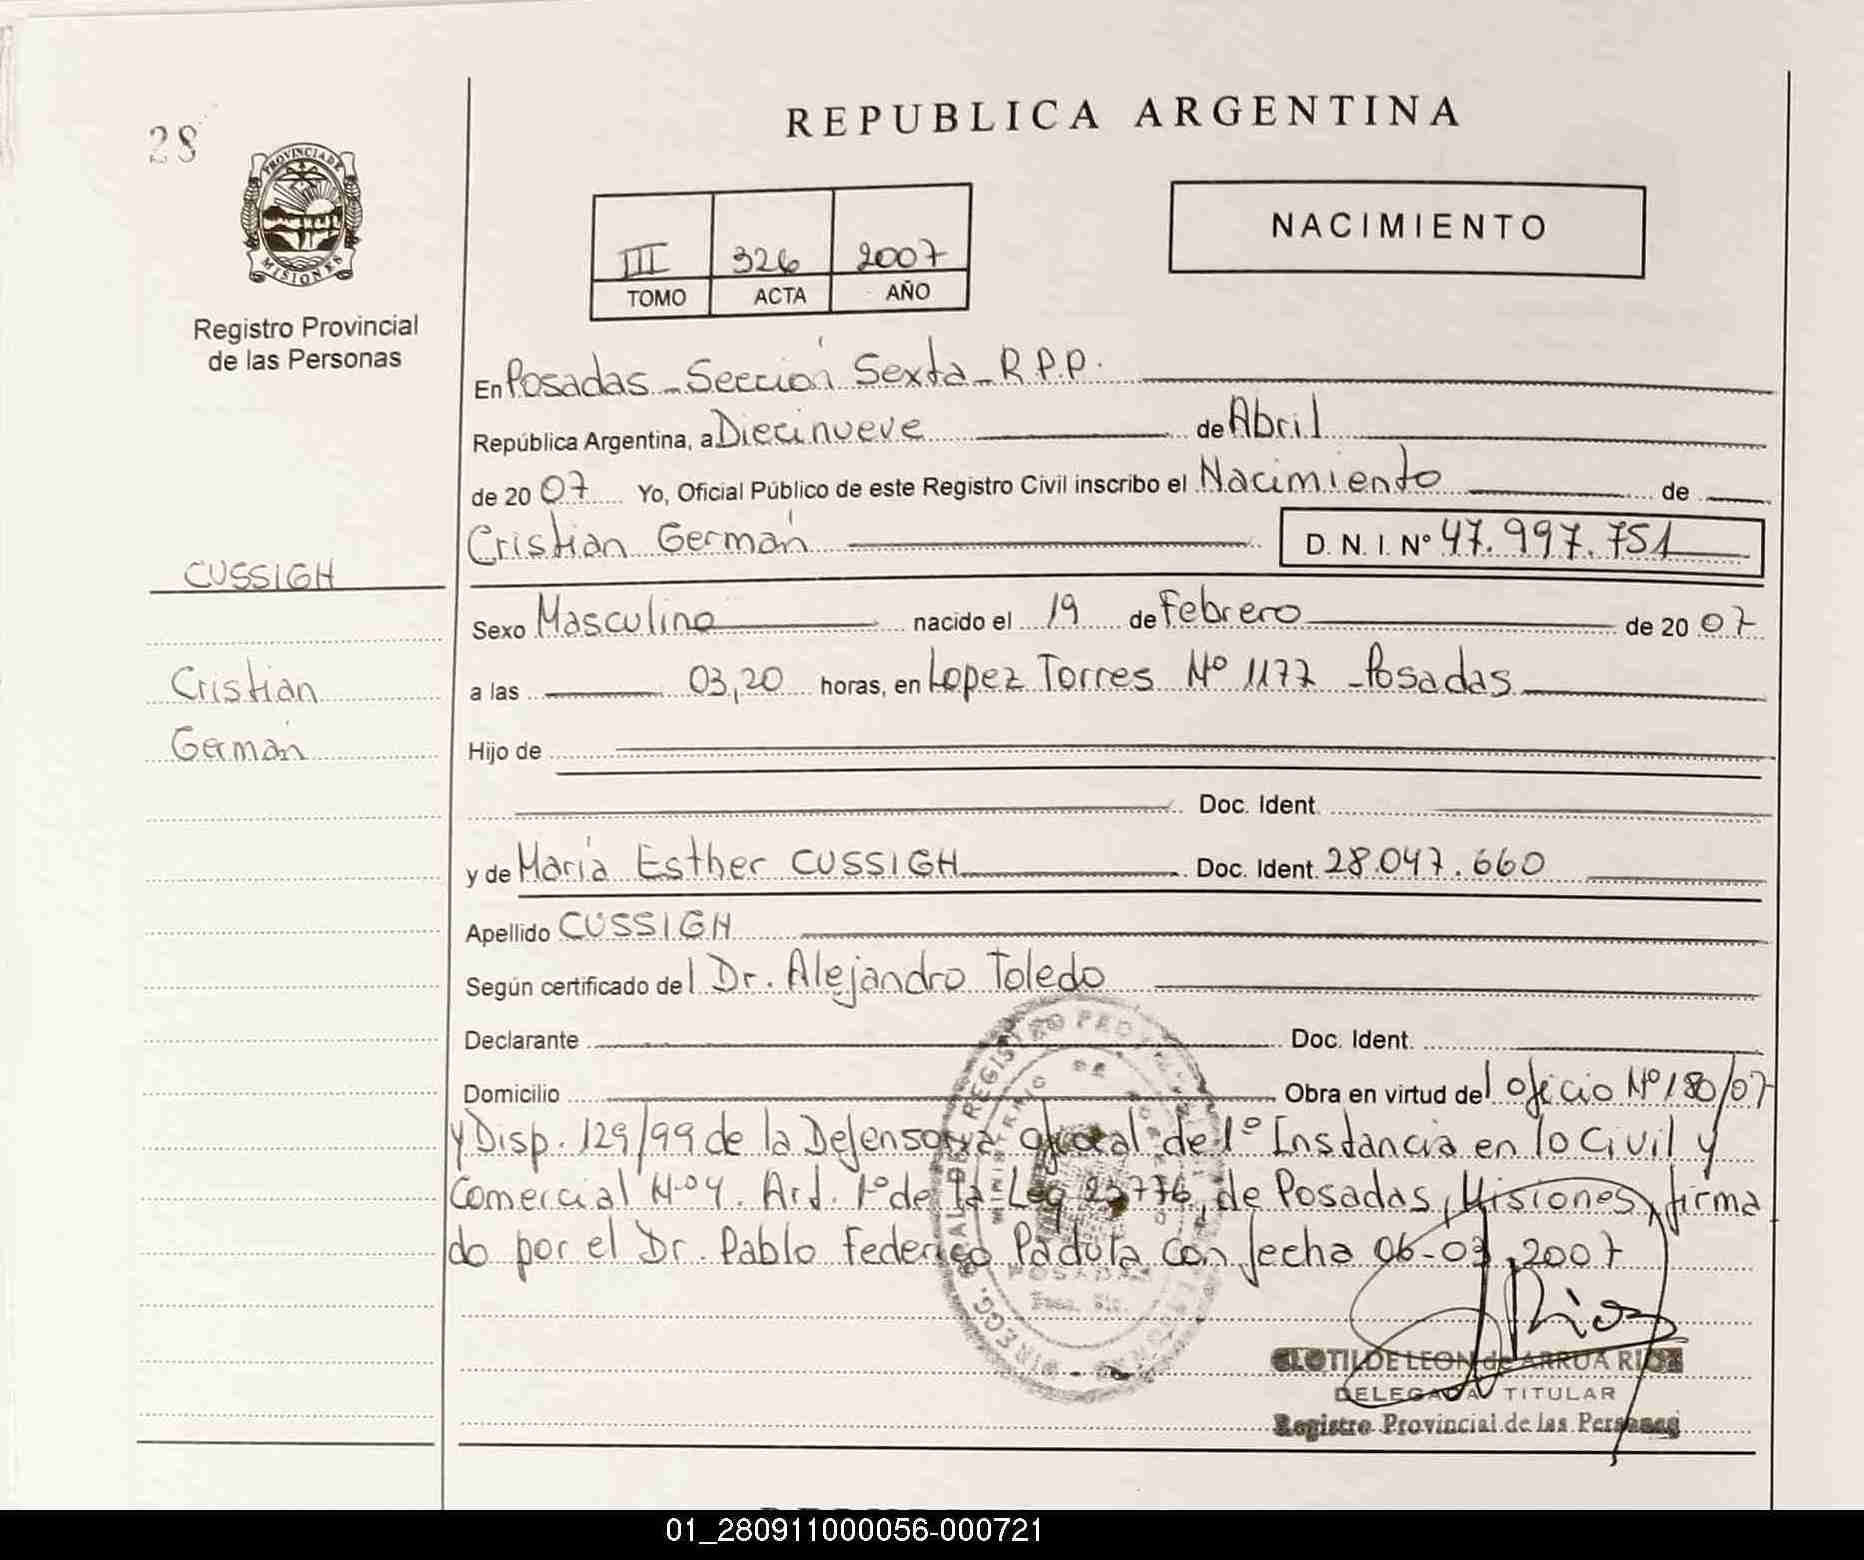 28
REPUBLICA ARGENTINA
PROVINCIA DE
MISIONES
Registro Provincial
de las Personas
III 326 2007
TOMO ACTA AÑO
NACIMIENTO
En Posadas - Sección Sexta - R.P.P.
República Argentina, a Diecinueve de Abril
de 20 07 Yo, Oficial Público de este Registro Civil inscribo el Nacimiento de
Cristian Germán D. N. I. Nº 47.997.751
CUSSIGH
Sexo Masculino nacido el 19 de Febrero de 20 07
Cristian
a las 03,20 horas, en Lopez Torres Nº 1177 - Posadas
Germán
Hijo de
Doc. Ident.
y de María Esther CUSSIGH Doc. Ident. 28.047.660
Apellido CUSSIGH
Según certificado del Dr. Alejandro Toledo
Declarante Doc. Ident.
Domicilio Obra en virtud del oficio Nº 180/07
y Disp. 129/99 de la Defensoría oficial de 1º Instancia en lo Civil y
Comercial Nº 4. Art. 1º de la Ley 23776, de Posadas, Misiones, firma
do por el Dr. Pablo Federico Padula con fecha 06-03-2007
POSADAS
Rios
CLOTILDE LEON de ARRUA RIOS
DELEGADA TITULAR
Registro Provincial de las Personas
01_280911000056-000721